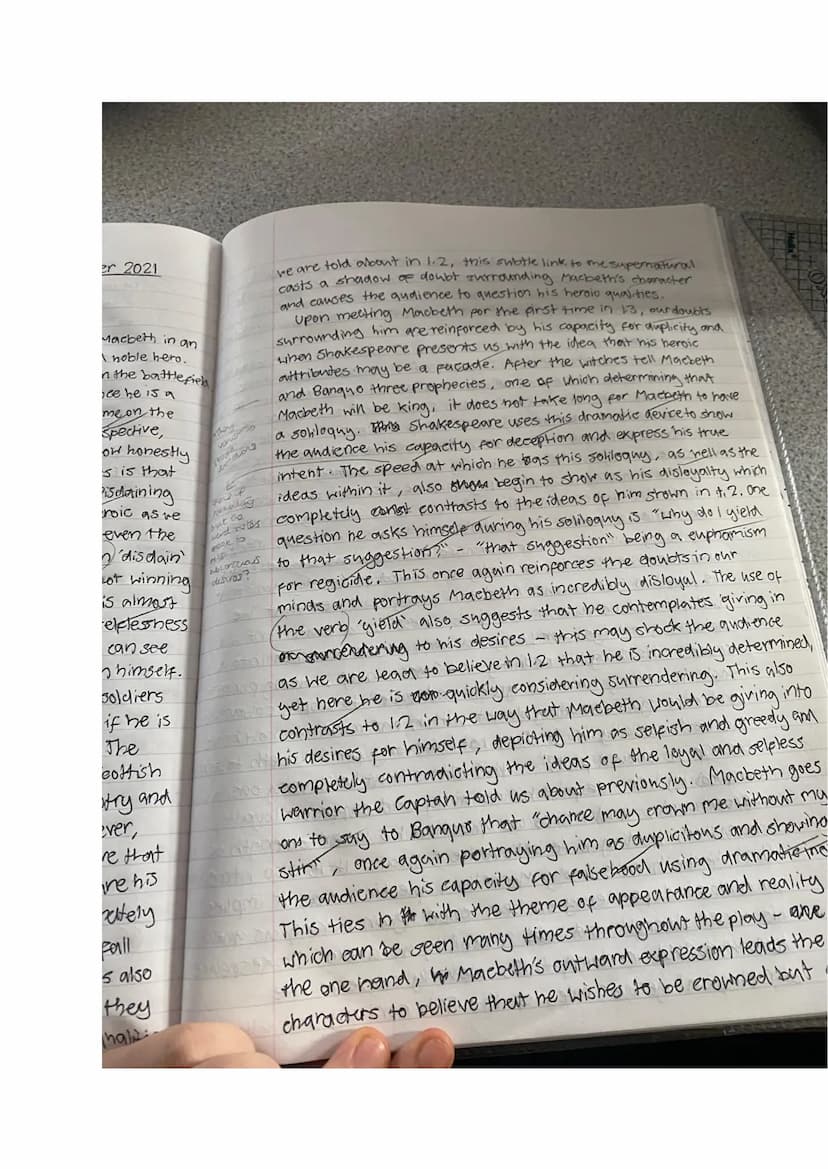 er 2021
Macbeth in an
noble hero.
n the battlefield
ce he is a
me on the
spective,
ow honestly
s is that
isdaining
roic as we
even the
'disdain'
ot winning
is almost
elflessness
can see
n himself.
soldiers
if he is
The
cottish
try and
ever,
re that
are his
ately
fall
s also
they
we are told about in 1.2, this subtle link to the supernatural
casts a shadow of doubt surrounding Macbeth's character
and causes the audience to question his heroic qualities.
Upon meeting Macbeth for the first time in 1.3, our doubts
surrounding him are reinforced by his capacity for duplicity and
when Shakespeare presents us with the idea that his heroic
attributes may be a facade. After the witches tell Macbeth
and Banquo three prophecies, one of which determining that
Macbeth will be king, it does not take long for Macbeth to have
a soliloquy. This Shakespeare uses this dramatic device to show
the audience his capacity for deception and express his true
intent. The speed at which he has this soliloquy, as well as the
ideas within it, also show begin to show as his disloyalty which
completely const contrasts to the ideas of him shown in 1.2. One
question he asks himself during his soliloquy is "why do I yield
to that suggestion?" - "that suggestion" being a euphamism
for regicide. This once again reinforces the doubts in our
minds and portrays Macbeth as incredibly disloyal. The use of
the verb 'yield' also suggests that he contemplates 'giving in
or surrendering to his desires - this may shock the audience
as we are lead to believe in 1.2 that he is incredibly determined,
yet here he is quickly considering surrendering. This also
contrasts to 1.2 in the way that Macbeth would be giving into
his desires for himself, depicting him as selfish and greedy and
completely contradicting the ideas of the loyal and selfless
warrior the Captain told us about previously. Macbeth goes
on to say to Banquo that "chance may crown me without my
stir", once again portraying him as duplicitous and showing
the audience his capacity for falsehood using dramatic
This ties in with the theme of appearance and reality
which can be seen many times throughout the play - one
the one hand, Macbeth's outward expression leads the
characters to believe that he wishes to be crowned but